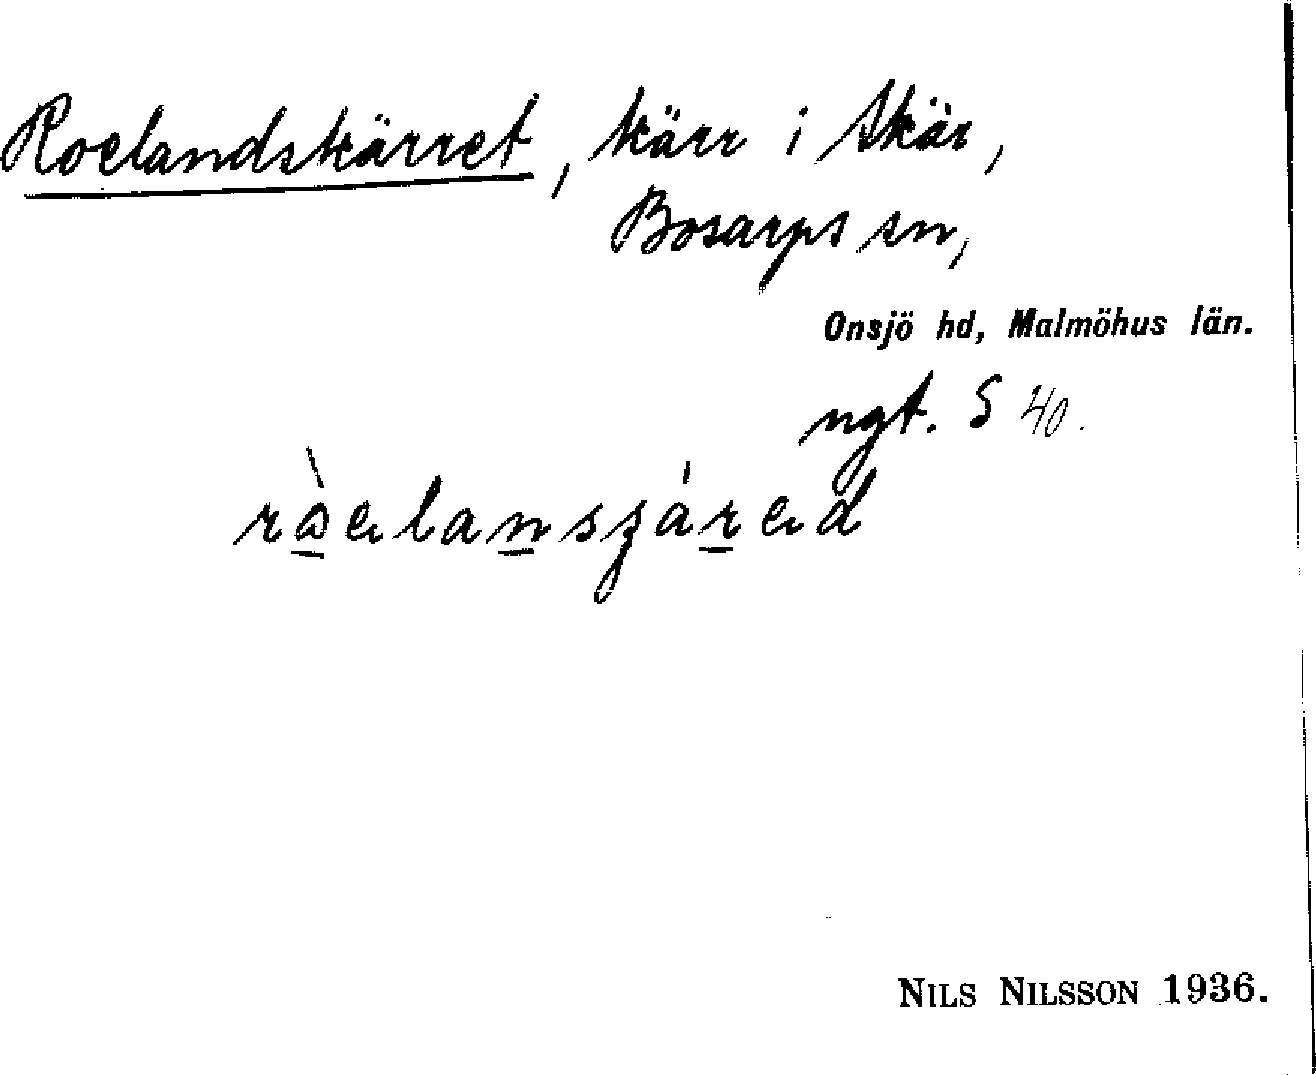 Roelandskärret, kärr i Skär,
Bosarps sn,
Onsjö hd, Malmöhus län.
ngt. S 40.
NILS NILSSON 1936.